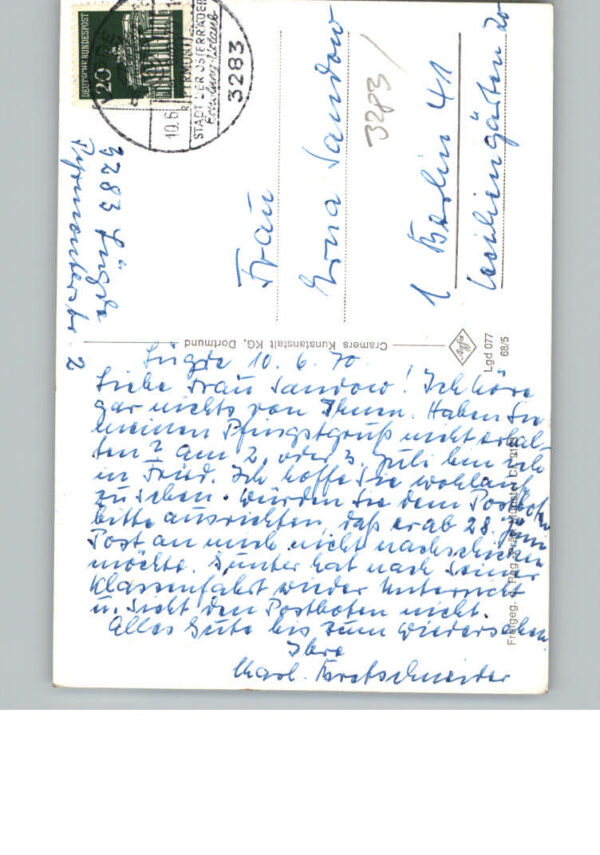 DEUTSCHE BUNDESPOST
20
10.6
STADT DER OSTERRÄDER
3283
3283 Lügde
Pyrmonterstr. 2
3283/
Frau
Erna Sandow
1 Berlin 41
Cäciliengärten 20
Cramers Kunstanstalt KG, Dortmund
Agfa
Lgd 077
68/5
Freigeg. d. Reg. Präs. Münster
Lügde 10. 6. 70
Liebe Frau Sandow! Ich höre
gar nichts von Ihnen. Haben Sie
meinen Pfingstgruß nicht erhal-
ten? Am 2. oder 3. Juli bin ich
in Fried. Ich hoffe Sie wohlauf
zu sehen. Würden Sie dem Postboten
bitte ausrichten, daß er ab 28. Juni
Post an mich nicht nachschicken
möchte. Günter hat nach seiner
Klassenfahrt wieder Unterricht
u. sieht den Postboten nicht.
Alles Gute bis zum Wiedersehen
Ihre
Charl. Bretschneider